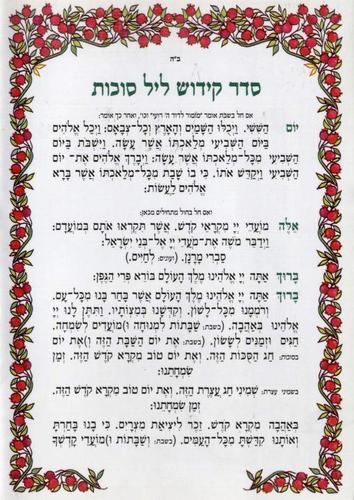 ב"ה
סדר קידוש ליל סוכות
אם חל בשבת אומר "מזמור לדוד ה' רועי" וכו', ואחר כך אומר:
יוֹם הַשִּׁשִּׁי. וַיְכֻלּוּ הַשָּׁמַיִם וְהָאָרֶץ וְכָל־צְבָאָם: וַיְכַל אֱלֹהִים
בַּיּוֹם הַשְּׁבִיעִי מְלַאכְתּוֹ אֲשֶׁר עָשָׂה. וַיִּשְׁבֹּת בַּיּוֹם
הַשְּׁבִיעִי מִכָּל־מְלַאכְתּוֹ אֲשֶׁר עָשָׂה: וַיְבָרֶךְ אֱלֹהִים אֶת־ יוֹם
הַשְּׁבִיעִי וַיְקַדֵּשׁ אֹתוֹ. כִּי בוֹ שָׁבַת מִכָּל־מְלַאכְתּוֹ אֲשֶׁר בָּרָא
אֱלֹהִים לַעֲשׂוֹת:
ואם חל בחול מתחילים מכאן:
אֵלֶּה מוֹעֲדֵי יְיָ מִקְרָאֵי קֹדֶשׁ. אֲשֶׁר תִּקְרְאוּ אֹתָם בְּמוֹעֲדָם:
וַיְדַבֵּר מֹשֶׁה אֶת־מֹעֲדֵי יְיָ אֶל־בְּנֵי יִשְׂרָאֵל:
סַבְרִי מָרָנָן. (ועונים: לְחַיִּים.)
בָּרוּךְ אַתָּה יְיָ אֱלֹהֵינוּ מֶלֶךְ הָעוֹלָם בּוֹרֵא פְּרִי הַגֶּפֶן:
בָּרוּךְ אַתָּה יְיָ אֱלֹהֵינוּ מֶלֶךְ הָעוֹלָם אֲשֶׁר בָּחַר בָּנוּ מִכָּל־עָם.
וְרוֹמְמָנוּ מִכָּל־לָשׁוֹן. וְקִדְּשָׁנוּ בְּמִצְוֹתָיו. וַתִּתֶּן לָנוּ יְיָ
אֱלֹהֵינוּ בְּאַהֲבָה. (בשבת: שַׁבָּתוֹת לִמְנוּחָה וּ)מוֹעֲדִים לְשִׂמְחָה.
חַגִּים וּזְמַנִּים לְשָׂשׂוֹן. (בשבת: אֶת־יוֹם הַשַּׁבָּת הַזֶּה. וְ)אֶת יוֹם
בסוכות: חַג הַסֻּכּוֹת הַזֶּה. וְאֶת יוֹם טוֹב מִקְרָא קֹדֶשׁ הַזֶּה. זְמַן
שִׂמְחָתֵנוּ:
בשמיני עצרת: שְׁמִינִי חַג עֲצֶרֶת הַזֶּה. וְאֶת יוֹם טוֹב מִקְרָא קֹדֶשׁ הַזֶּה.
זְמַן שִׂמְחָתֵנוּ:
בְּאַהֲבָה מִקְרָא קֹדֶשׁ. זֵכֶר לִיצִיאַת מִצְרָיִם. כִּי בָנוּ בָחַרְתָּ
וְאוֹתָנוּ קִדַּשְׁתָּ מִכָּל־הָעַמִּים. (בשבת: וְשַׁבָּתוֹת וּ)מוֹעֲדֵי קָדְשֶׁךָ